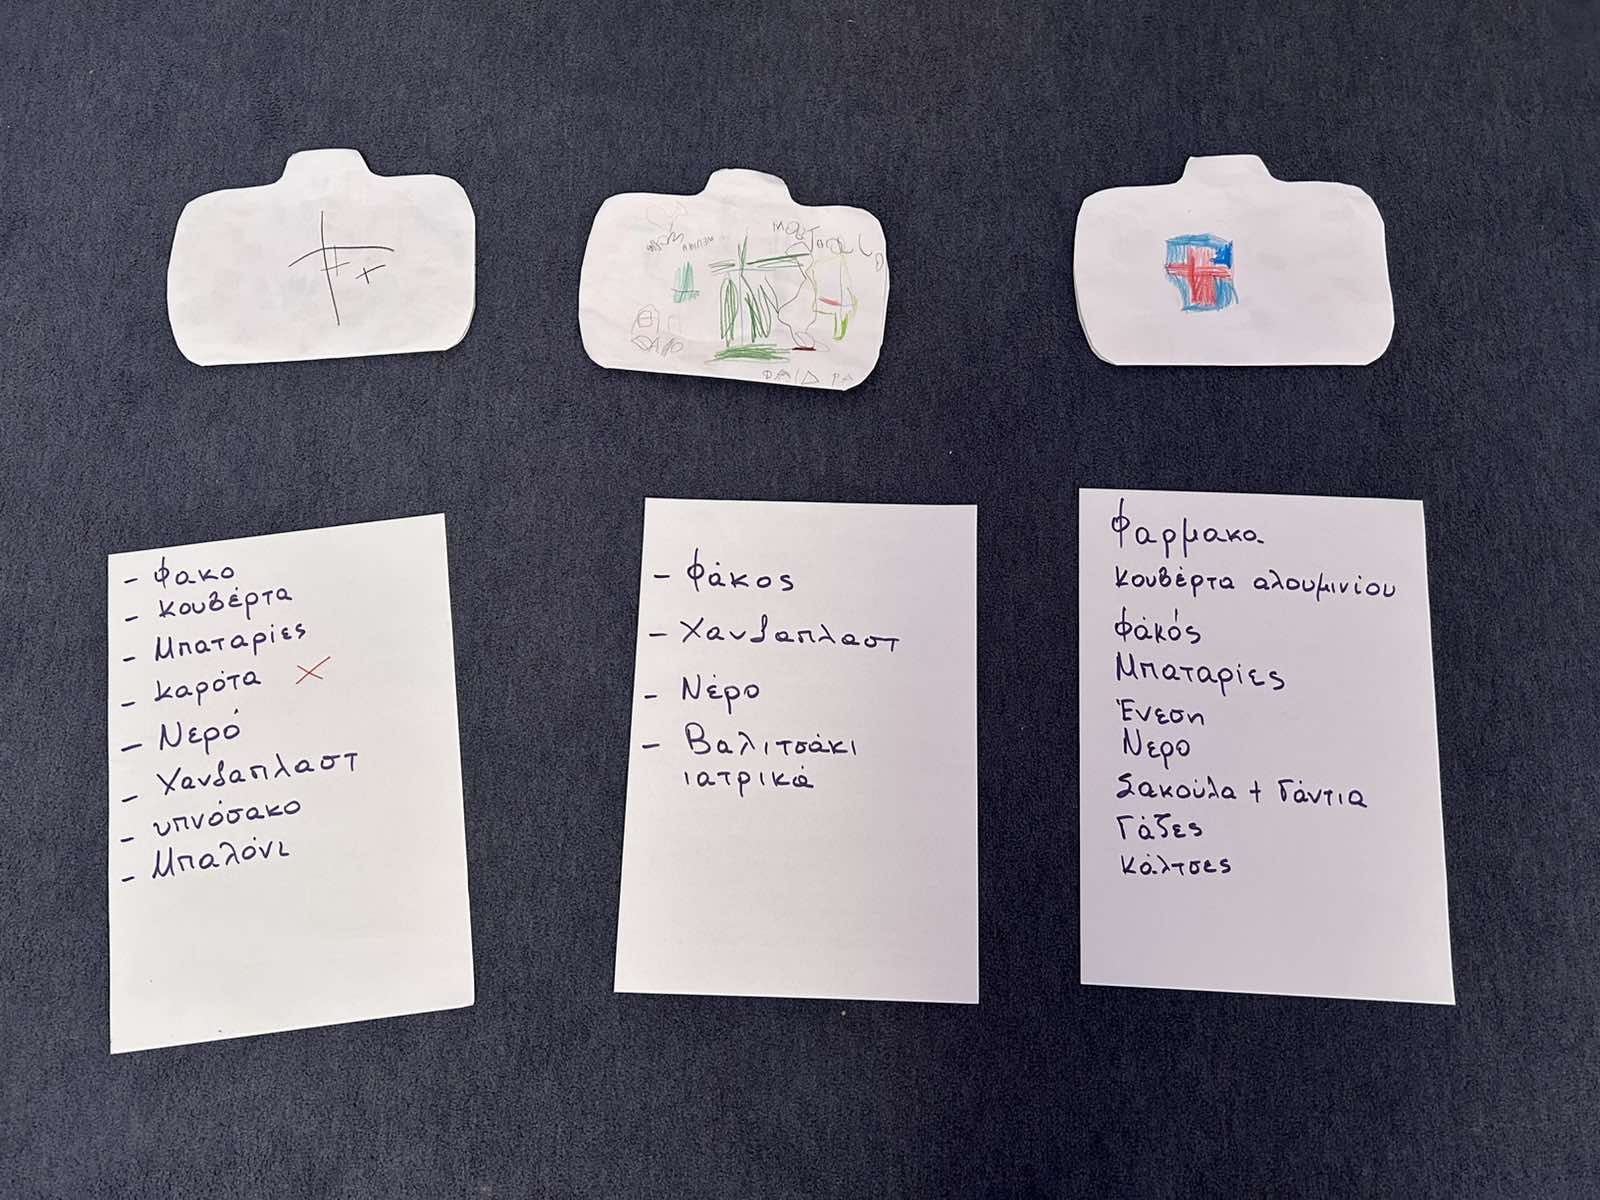 ΦΑΙΔΡΑ
- Φακο
- Κουβέρτα
- Μπαταρίες
- Καρότα X
- Νερό
- Χανσαπλαστ
- υπνόσακο
- Μπαλόνι
- Φάκος
- Χανσαπλαστ
- Νέρο
- Βαλιτσάκι
ιατρικά
Φαρμακα
Κουβέρτα αλουμινίου
Φάκός
Μπαταρίες
Ένεση
Νερο
Σακούλα + Γάντια
Γάζες
Κάλτσες